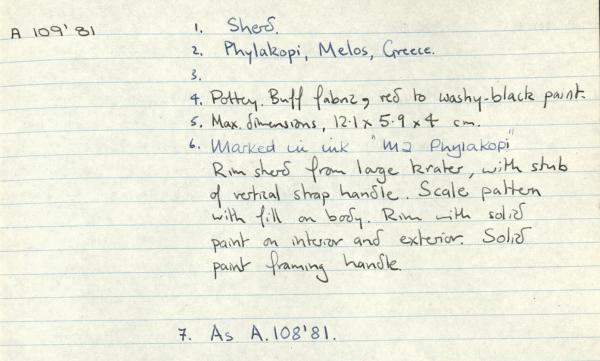 A 109'81
1. Sherd.
2. Phylakopi, Melos, Greece.
3.
4. Pottery. Buff fabric, red to washy-black paint.
5. Max. dimensions, 12.1 x 5.9 x 4 cm.
6. Marked in ink "M2 Phylakopi"
Rim sherd from large krater, with stub
of vertical strap handle. Scale pattern
with fill on body. Rim with solid
paint on interior and exterior. Solid
paint framing handle.
7. As A.108'81.